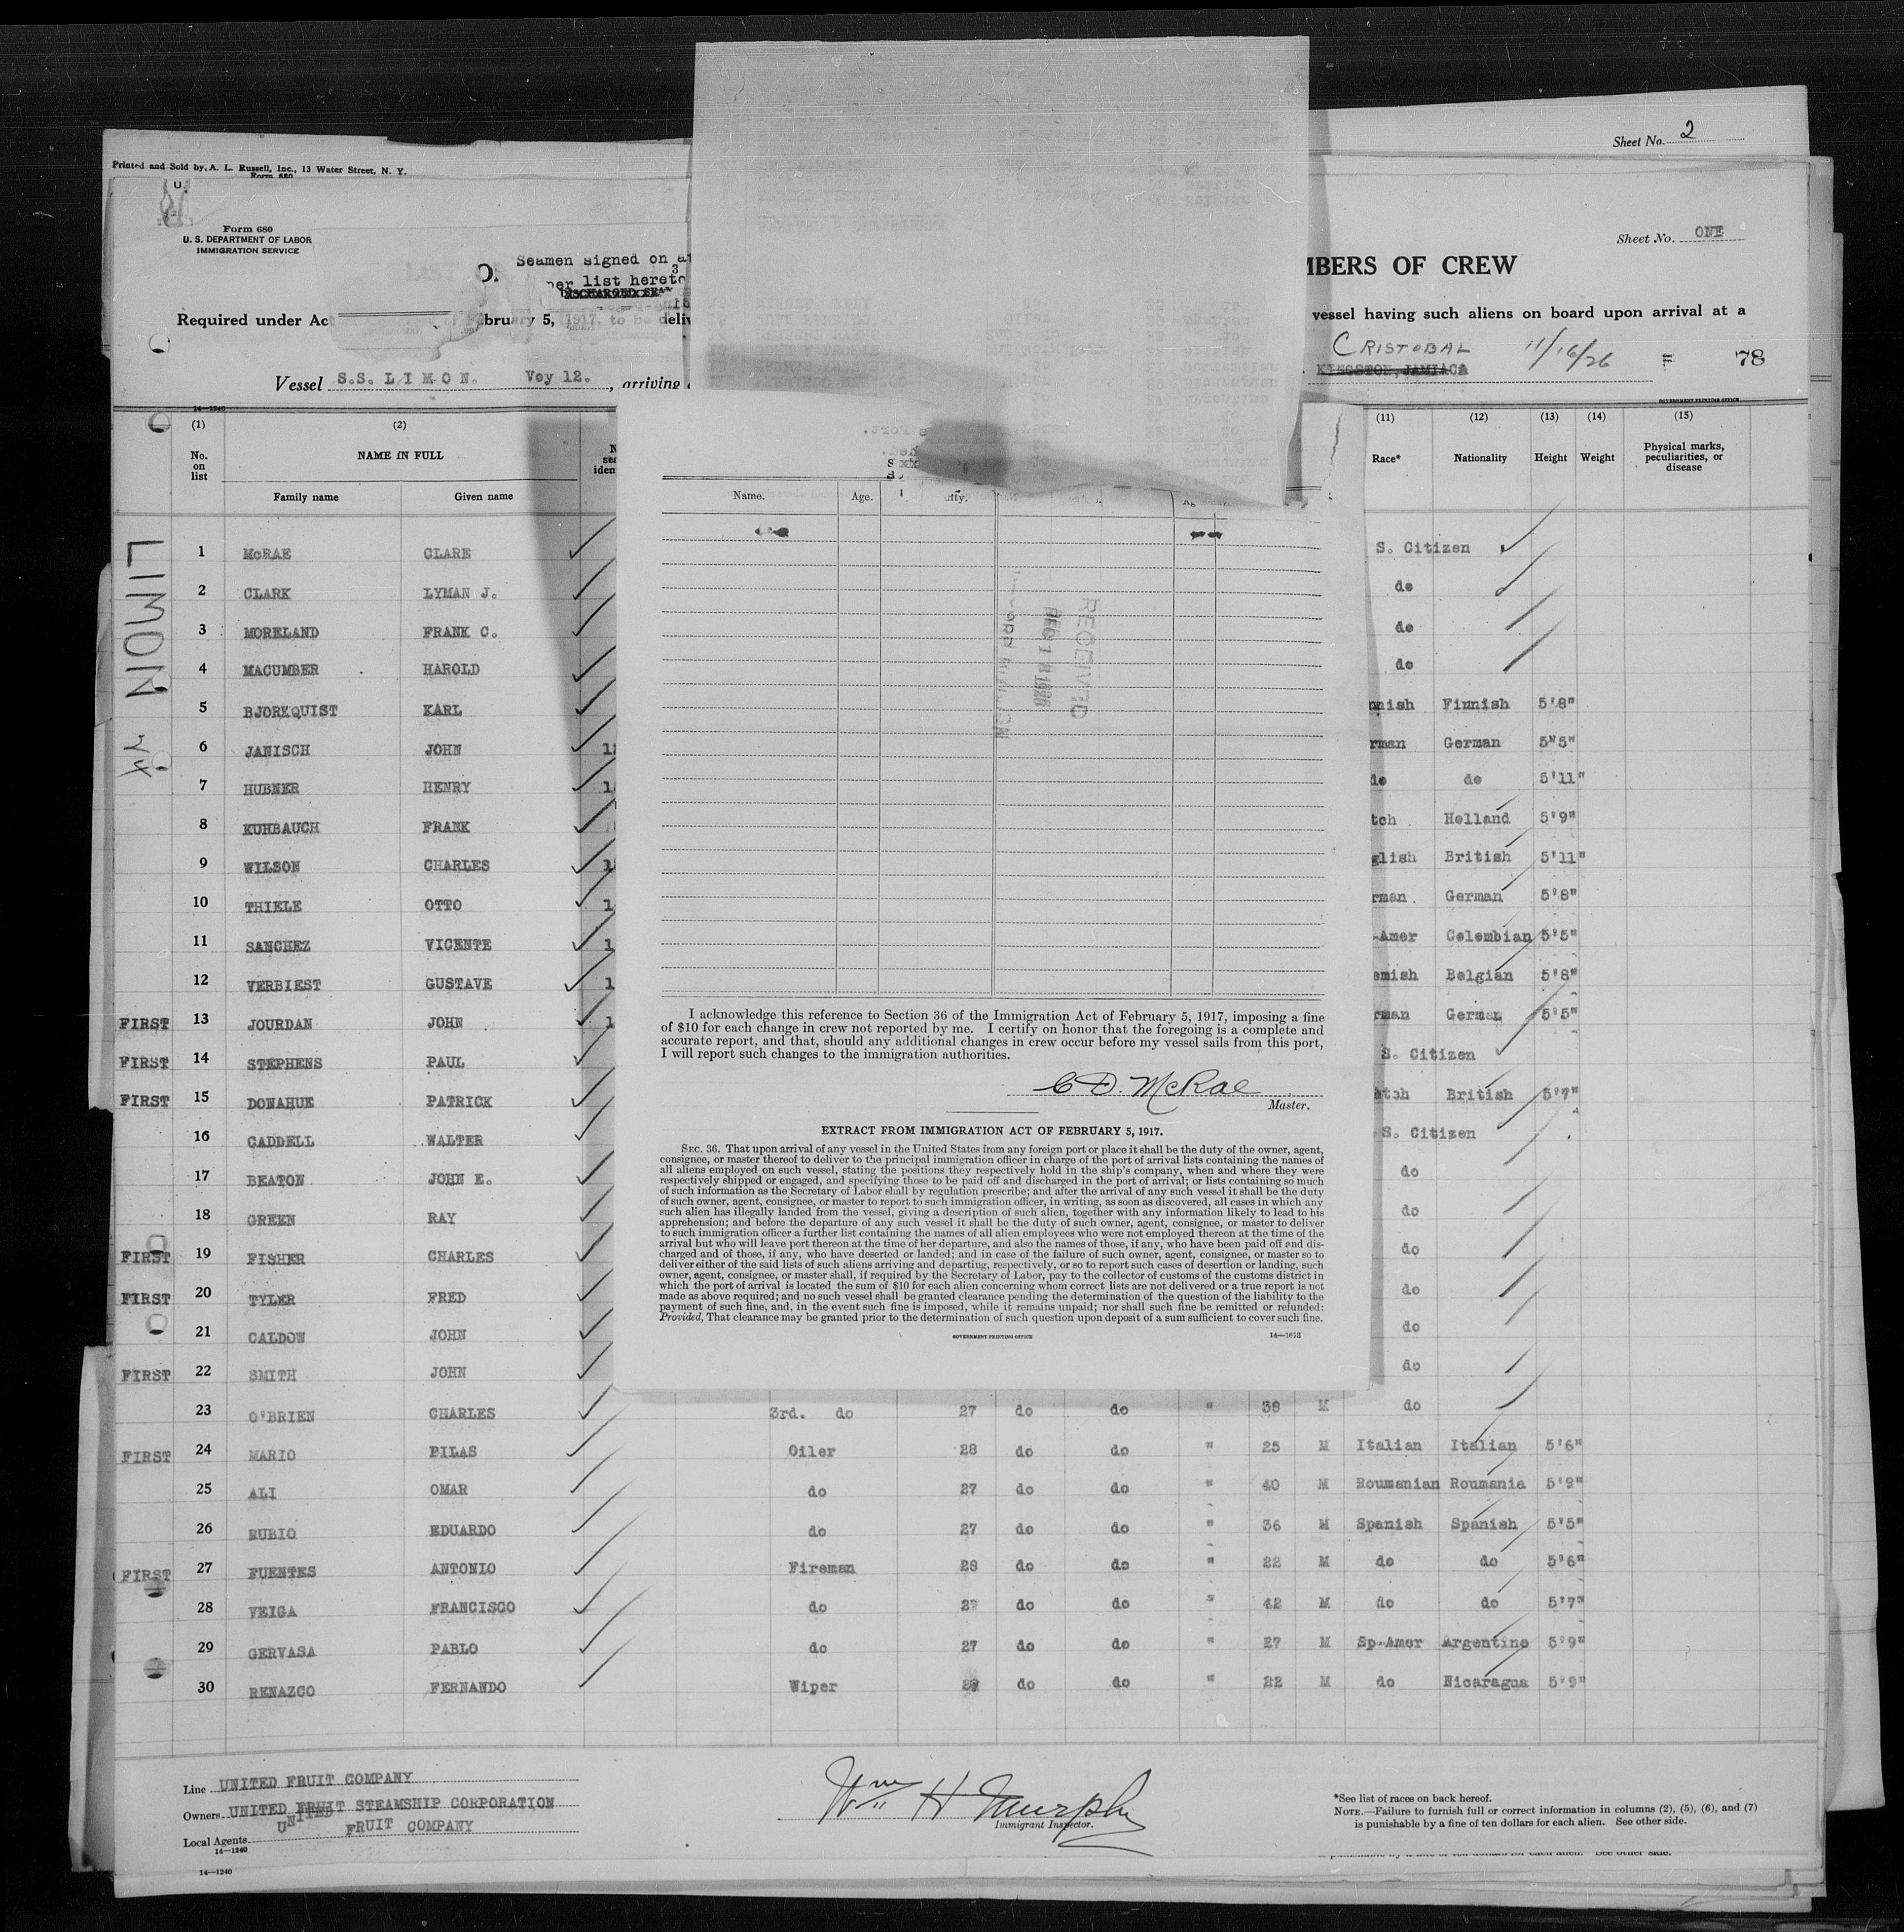 Sheet No. 2
Printed and Sold by A. L. Russell, Inc., 13 Water Street, N. Y.
Form 680
Form 680
U. S. DEPARTMENT OF LABOR
IMMIGRATION SERVICE
Sheet No. ONE
Seamen signed on at
per list hereto
MBERS OF CREW
Required under Act
February 5, 1917, to be deliv
vessel having such aliens on board upon arrival at a
CRISTOBAL 11/16/26
KINGSTON, JAMIACA
78
Vessel S.S. LIMON. Voy 12. , arriving
14—1240
GOVERNMENT PRINTING OFFICE
(1) (2) (11) (12) (13) (14) (15)
No. on list NAME IN FULL Race* Nationality Height Weight Physical marks, peculiarities, or disease
Family name Given name
Name. Age.
LIMON
RECEIVED
1 McRAE CLARE S. Citizen
2 CLARK LYMAN J. do
3 MORELAND FRANK C. do
4 MACUMBER HAROLD do
5 BJORKQUIST KARL nnish Finnish 5'8"
6 JANISCH JOHN rman German 5"5"
7 HUBNER HENRY do do 5'11"
8 KUHBAUCH FRANK tch Holland 5'9"
9 WILSON CHARLES glish British 5'11"
10 THIELE OTTO rman German 5'8"
11 SANCHEZ VICENTE -Amer Colombian 5'5"
12 VERBIEST GUSTAVE emish Belgian 5'8"
FIRST 13 JOURDAN JOHN rman German 5'5"
FIRST 14 STEPHENS PAUL S. Citizen
FIRST 15 DONAHUE PATRICK otch British 5'7"
16 CADDELL WALTER S. Citizen
17 BEATON JOHN E. do
18 GREEN RAY do
FIRST 19 FISHER CHARLES do
FIRST 20 TYLER FRED do
21 CALDOW JOHN do
FIRST 22 SMITH JOHN do
23 O'BRIEN CHARLES 3rd. do 27 do do " 38 M do
FIRST 24 MARIO PILAS Oiler 28 do do " 25 M Italian Italian 5'6"
25 ALI OMAR do 27 do do " 40 M Roumanian Roumania
26 RUBIO EDUARDO do 27 do do " 36 M Spanish Spanish 5'5"
FIRST 27 FUENTES ANTONIO Fireman 28 do do " 22 M do do 5'6"
28 VEIGA FRANCISCO do 27 do do " 42 M do do 5'7"
29 GERVASA PABLO do 27 do do " 27 M Sp-Amer Argentine 5'9"
30 RENAZCO FERNANDO Wiper do do " 22 M do Nicaragua 5'9"
I acknowledge this reference to Section 36 of the Immigration Act of February 5, 1917, imposing a fine
of $10 for each change in crew not reported by me. I certify on honor that the foregoing is a complete and
accurate report, and that, should any additional changes in crew occur before my vessel sails from this port,
I will report such changes to the immigration authorities.
C D. McRae
Master.
EXTRACT FROM IMMIGRATION ACT OF FEBRUARY 5, 1917.
SEC. 36. That upon arrival of any vessel in the United States from any foreign port or place it shall be the duty of the owner, agent,
consignee, or master thereof to deliver to the principal immigration officer in charge of the port of arrival lists containing the names of
all aliens employed on such vessel, stating the positions they respectively hold in the ship's company, when and where they were
respectively shipped or engaged, and specifying those to be paid off and discharged in the port of arrival; or lists containing so much
of such information as the Secretary of Labor shall by regulation prescribe; and after the arrival of any such vessel it shall be the duty
of such owner, agent, consignee, or master to report to such immigration officer, in writing, as soon as discovered, all cases in which any
such alien has illegally landed from the vessel, giving a description of such alien, together with any information likely to lead to his
apprehension; and before the departure of any such vessel it shall be the duty of such owner, agent, consignee, or master to deliver
to such immigration officer a further list containing the names of all alien employees who were not employed thereon at the time of the
arrival but who will leave port thereon at the time of her departure, and also the names of those, if any, who have been paid off and dis-
charged and of those, if any, who have deserted or landed; and in case of the failure of such owner, agent, consignee, or master so to
deliver either of the said lists of such aliens arriving and departing, respectively, or so to report such cases of desertion or landing, such
owner, agent, consignee, or master shall, if required by the Secretary of Labor, pay to the collector of customs of the customs district in
which the port of arrival is located the sum of $10 for each alien concerning whom correct lists are not delivered or a true report is not
made as above required; and no such vessel shall be granted clearance pending the determination of the question of the liability to the
payment of such fine, and, in the event such fine is imposed, while it remains unpaid; nor shall such fine be remitted or refunded:
Provided, That clearance may be granted prior to the determination of such question upon deposit of a sum sufficient to cover such fine.
GOVERNMENT PRINTING OFFICE 14—1613
Line UNITED FRUIT COMPANY
Owners UNITED FRUIT STEAMSHIP CORPORATION
Local Agents UNITED FRUIT COMPANY
14—1240
14—1240
Wm H Murphy
Immigrant Inspector.
*See list of races on back hereof.
NOTE.—Failure to furnish full or correct information in columns (2), (5), (6), and (7)
is punishable by a fine of ten dollars for each alien. See other side.